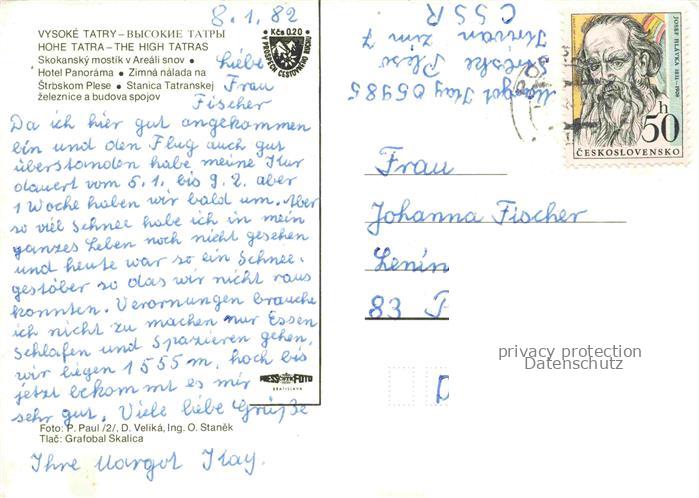 8.1.82
VYSOKÉ TATRY – ВЫСОКИЕ ТАТРЫ
HOHE TATRA – THE HIGH TATRAS
Skokanský mostík v Areáli snov •
Hotel Panoráma • Zimná nálada na
Štrbskom Plese • Stanica Tatranskej
železnice a budova spojov
Kčs 0.20
V PROSPECH CESTOVNÉHO RUCHU
Liebe
Frau
Fischer
Da ich hier gut angekommen
bin und den Flug auch gut
überstanden habe meine Kur
dauert vom 5.1. bis 9.2. aber
1 Woche haben wir bald um. Aber
so viel Schnee habe ich in mein
ganzes Leben noch nicht gesehen
und heute war so ein Schnee-
gestöber so das wir nicht raus
konnten. Verornungen brauche
ich nicht zu machen nur Essen
Schlafen und Spazieren gehen,
wir liegen 1555 m, hoch bis
jetzt bekommt es mir
sehr gut. Viele liebe Grüße
Ihre Margot Itay.
PRESSFOTO
BRATISLAVA
Foto: P. Paul /2/, D. Veliká, Ing. O. Staněk
Tlač: Grafobal Skalica
Margot Itay 05985
Pleso
7
ČSSR
JOSEF HLÁVKA 1831–1908
50 h
ČESKOSLOVENSKO
Frau
Johanna Fischer
Lenin
83
D
privacy protection
Datenschutz